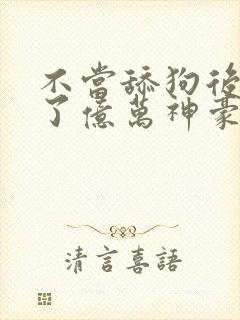 不當舔狗後
了億萬神豪
清言喜語